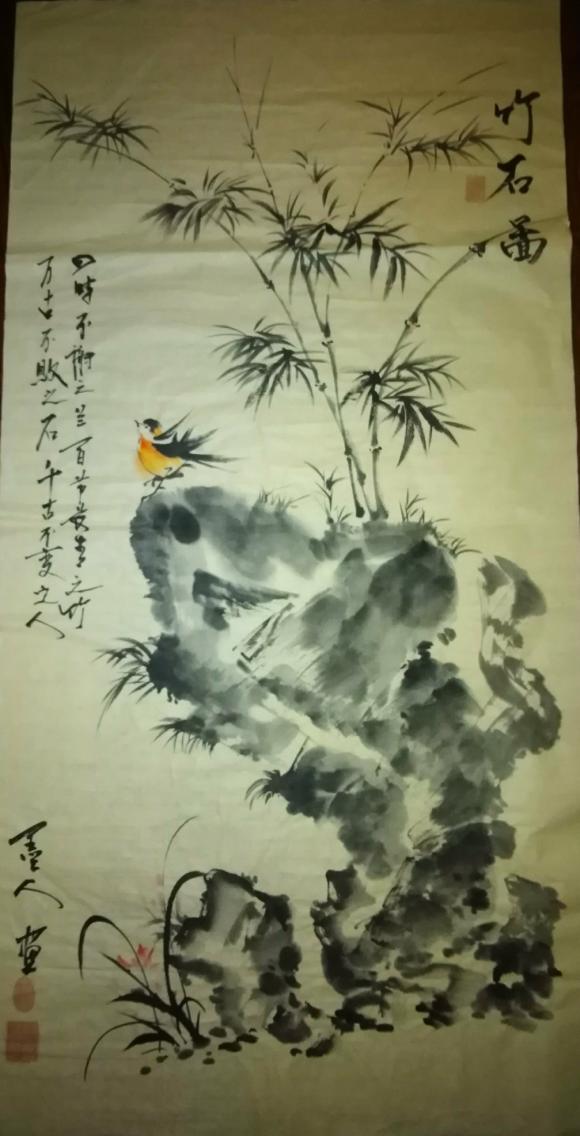 竹石图
四时不谢之兰百节长青之竹
万古不败之石千古不变之人
墨人画